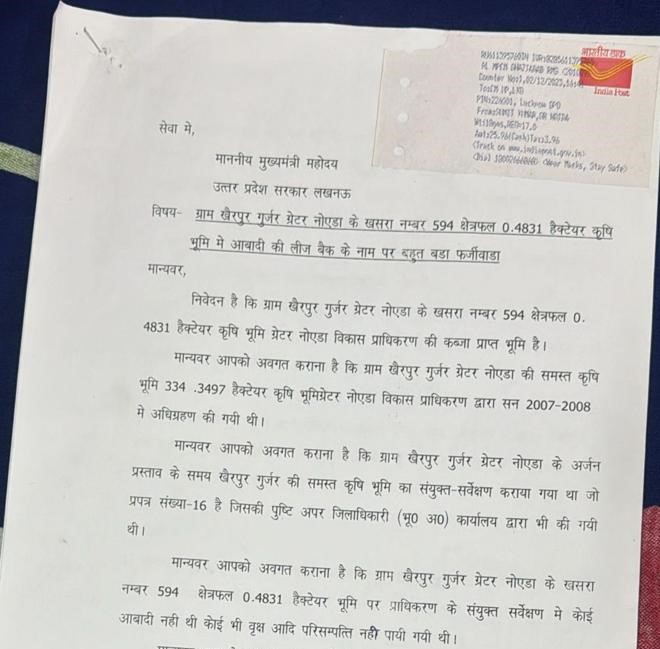 भारतीय डाक
India Post
Counter No:1,02/12/2023,16:4
PIN:226001, Lucknow GPO
Amt:25.96(Cash)Tax:3.96
(Track on www.indiapost.gov.in)
(Dial 18002666868) (Wear Masks, Stay Safe)
सेवा मे,
माननीय मुख्यमंत्री महोदय
उत्तर प्रदेश सरकार लखनऊ
विषय- ग्राम खैरपुर गुर्जर ग्रेटर नोएडा के खसरा नम्बर 594 क्षेत्रफल 0.4831 हैक्टेयर कृषि
भूमि मे आबादी की लीज बैक के नाम पर बहुत बडा फर्जीवाडा
मान्यवर,
निवेदन है कि ग्राम खैरपुर गुर्जर ग्रेटर नोएडा के खसरा नम्बर 594 क्षेत्रफल 0.
4831 हैक्टेयर कृषि भूमि ग्रेटर नोएडा विकास प्राधिकरण की कब्जा प्राप्त भूमि है।
मान्यवर आपको अवगत कराना है कि ग्राम खैरपुर गुर्जर ग्रेटर नोएडा की समस्त कृषि
भूमि 334 .3497 हैक्टेयर कृषि भूमिग्रेटर नोएडा विकास प्राधिकरण द्वारा सन 2007-2008
मे अधिग्रहण की गयी थी।
मान्यवर आपको अवगत कराना है कि ग्राम खैरपुर गुर्जर ग्रेटर नोएडा के अर्जन
प्रस्ताव के समय खैरपुर गुर्जर की समस्त कृषि भूमि का संयुक्त-सर्वेक्षण कराया गया था जो
प्रपत्र संख्या-16 है जिसकी पुष्टि अपर जिलाधिकारी (भू0 अ0) कार्यालय द्वारा भी की गयी
थी।
मान्यवर आपको अवगत कराना है कि ग्राम खैरपुर गुर्जर ग्रेटर नोएडा के खसरा
नम्बर 594 क्षेत्रफल 0.4831 हैक्टेयर भूमि पर प्राधिकरण के संयुक्त सर्वेक्षण मे कोई
आबादी नही थी कोई भी वृक्ष आदि परिसम्पत्ति नही पायी गयी थी।